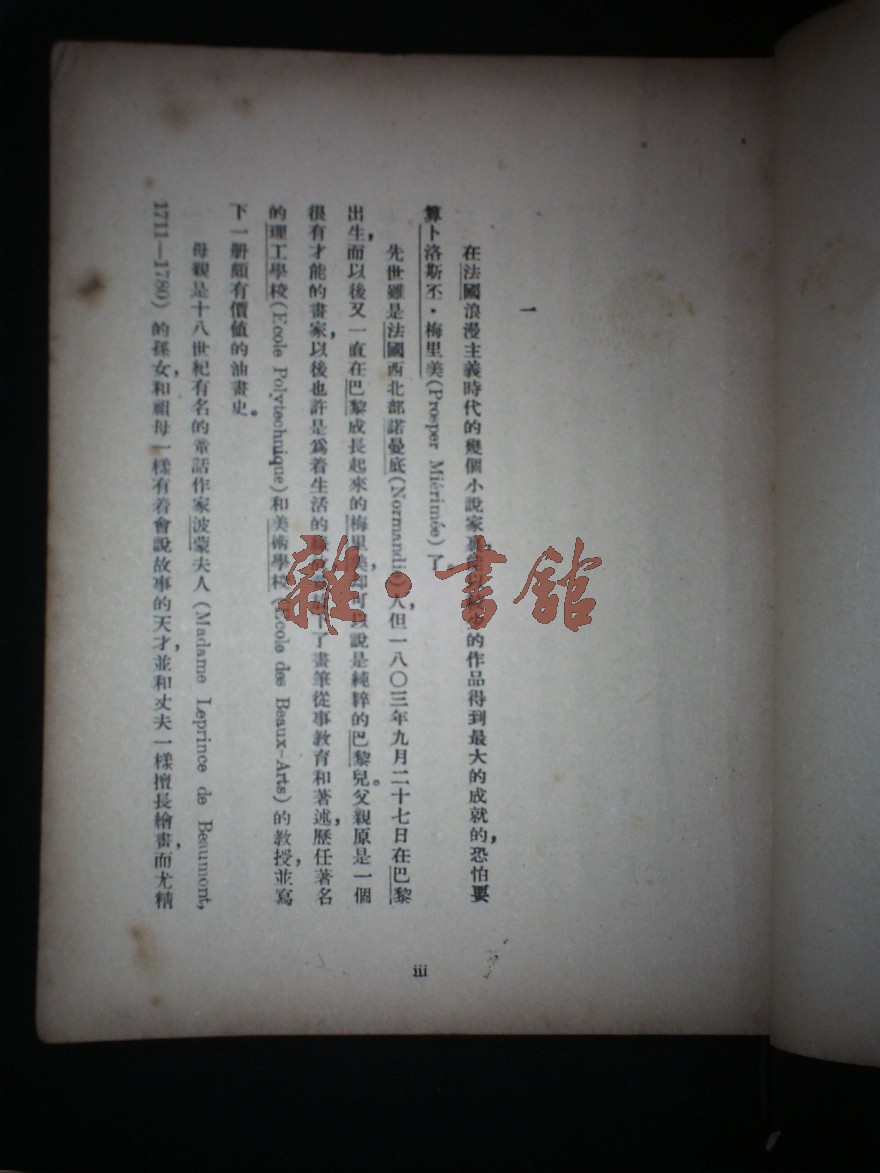 一
在法國浪漫主義時代的幾個小說家裏 的作品得到最大的成就的，恐怕要
算卜洛斯丕·梅里美(Prosper Miérimée)了。
先世雖是法國西北部諾曼底(Normandie)人，但一八〇三年九月二十七日在巴黎
出生，而以後又一直在巴黎成長起來的梅里美，却可以說是純粹的巴黎兒。父親原是一個
很有才能的畫家，以後也許是為着生活的 了畫筆從事教育和著述，歷任著名
的理工學校(Ecole Polytechnique)和美術學校(Ecole des Beaux-Arts)的教授，並寫
下一册頗有價值的油畫史。
母親是十八世紀有名的童話作家波蒙夫人(Madame Leprince de Beaumont,
1711—1780)的孫女，和祖母一樣有着會說故事的天才，並和丈夫一樣擅長繪畫，而尤精
iii
雜·書館